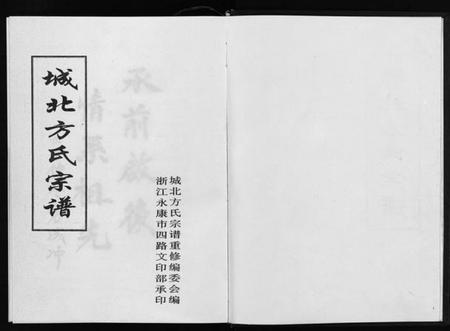 城北方氏宗谱
承前啟後
城北方氏宗谱重修编委会编
浙江永康市四路文印部承印